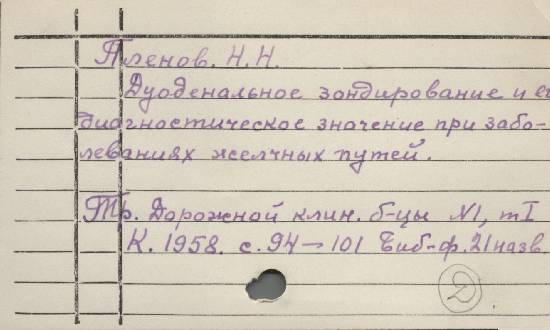 Пленов. Н.Н.
Дуоденальное зондирование и ег
диагностическое значение при забо-
леваниях желчных путей.
Тр. Дорожной клин. б-цы №1, тI
К. 1958. с. 94—101 Биб-ф. 21 назв
Д